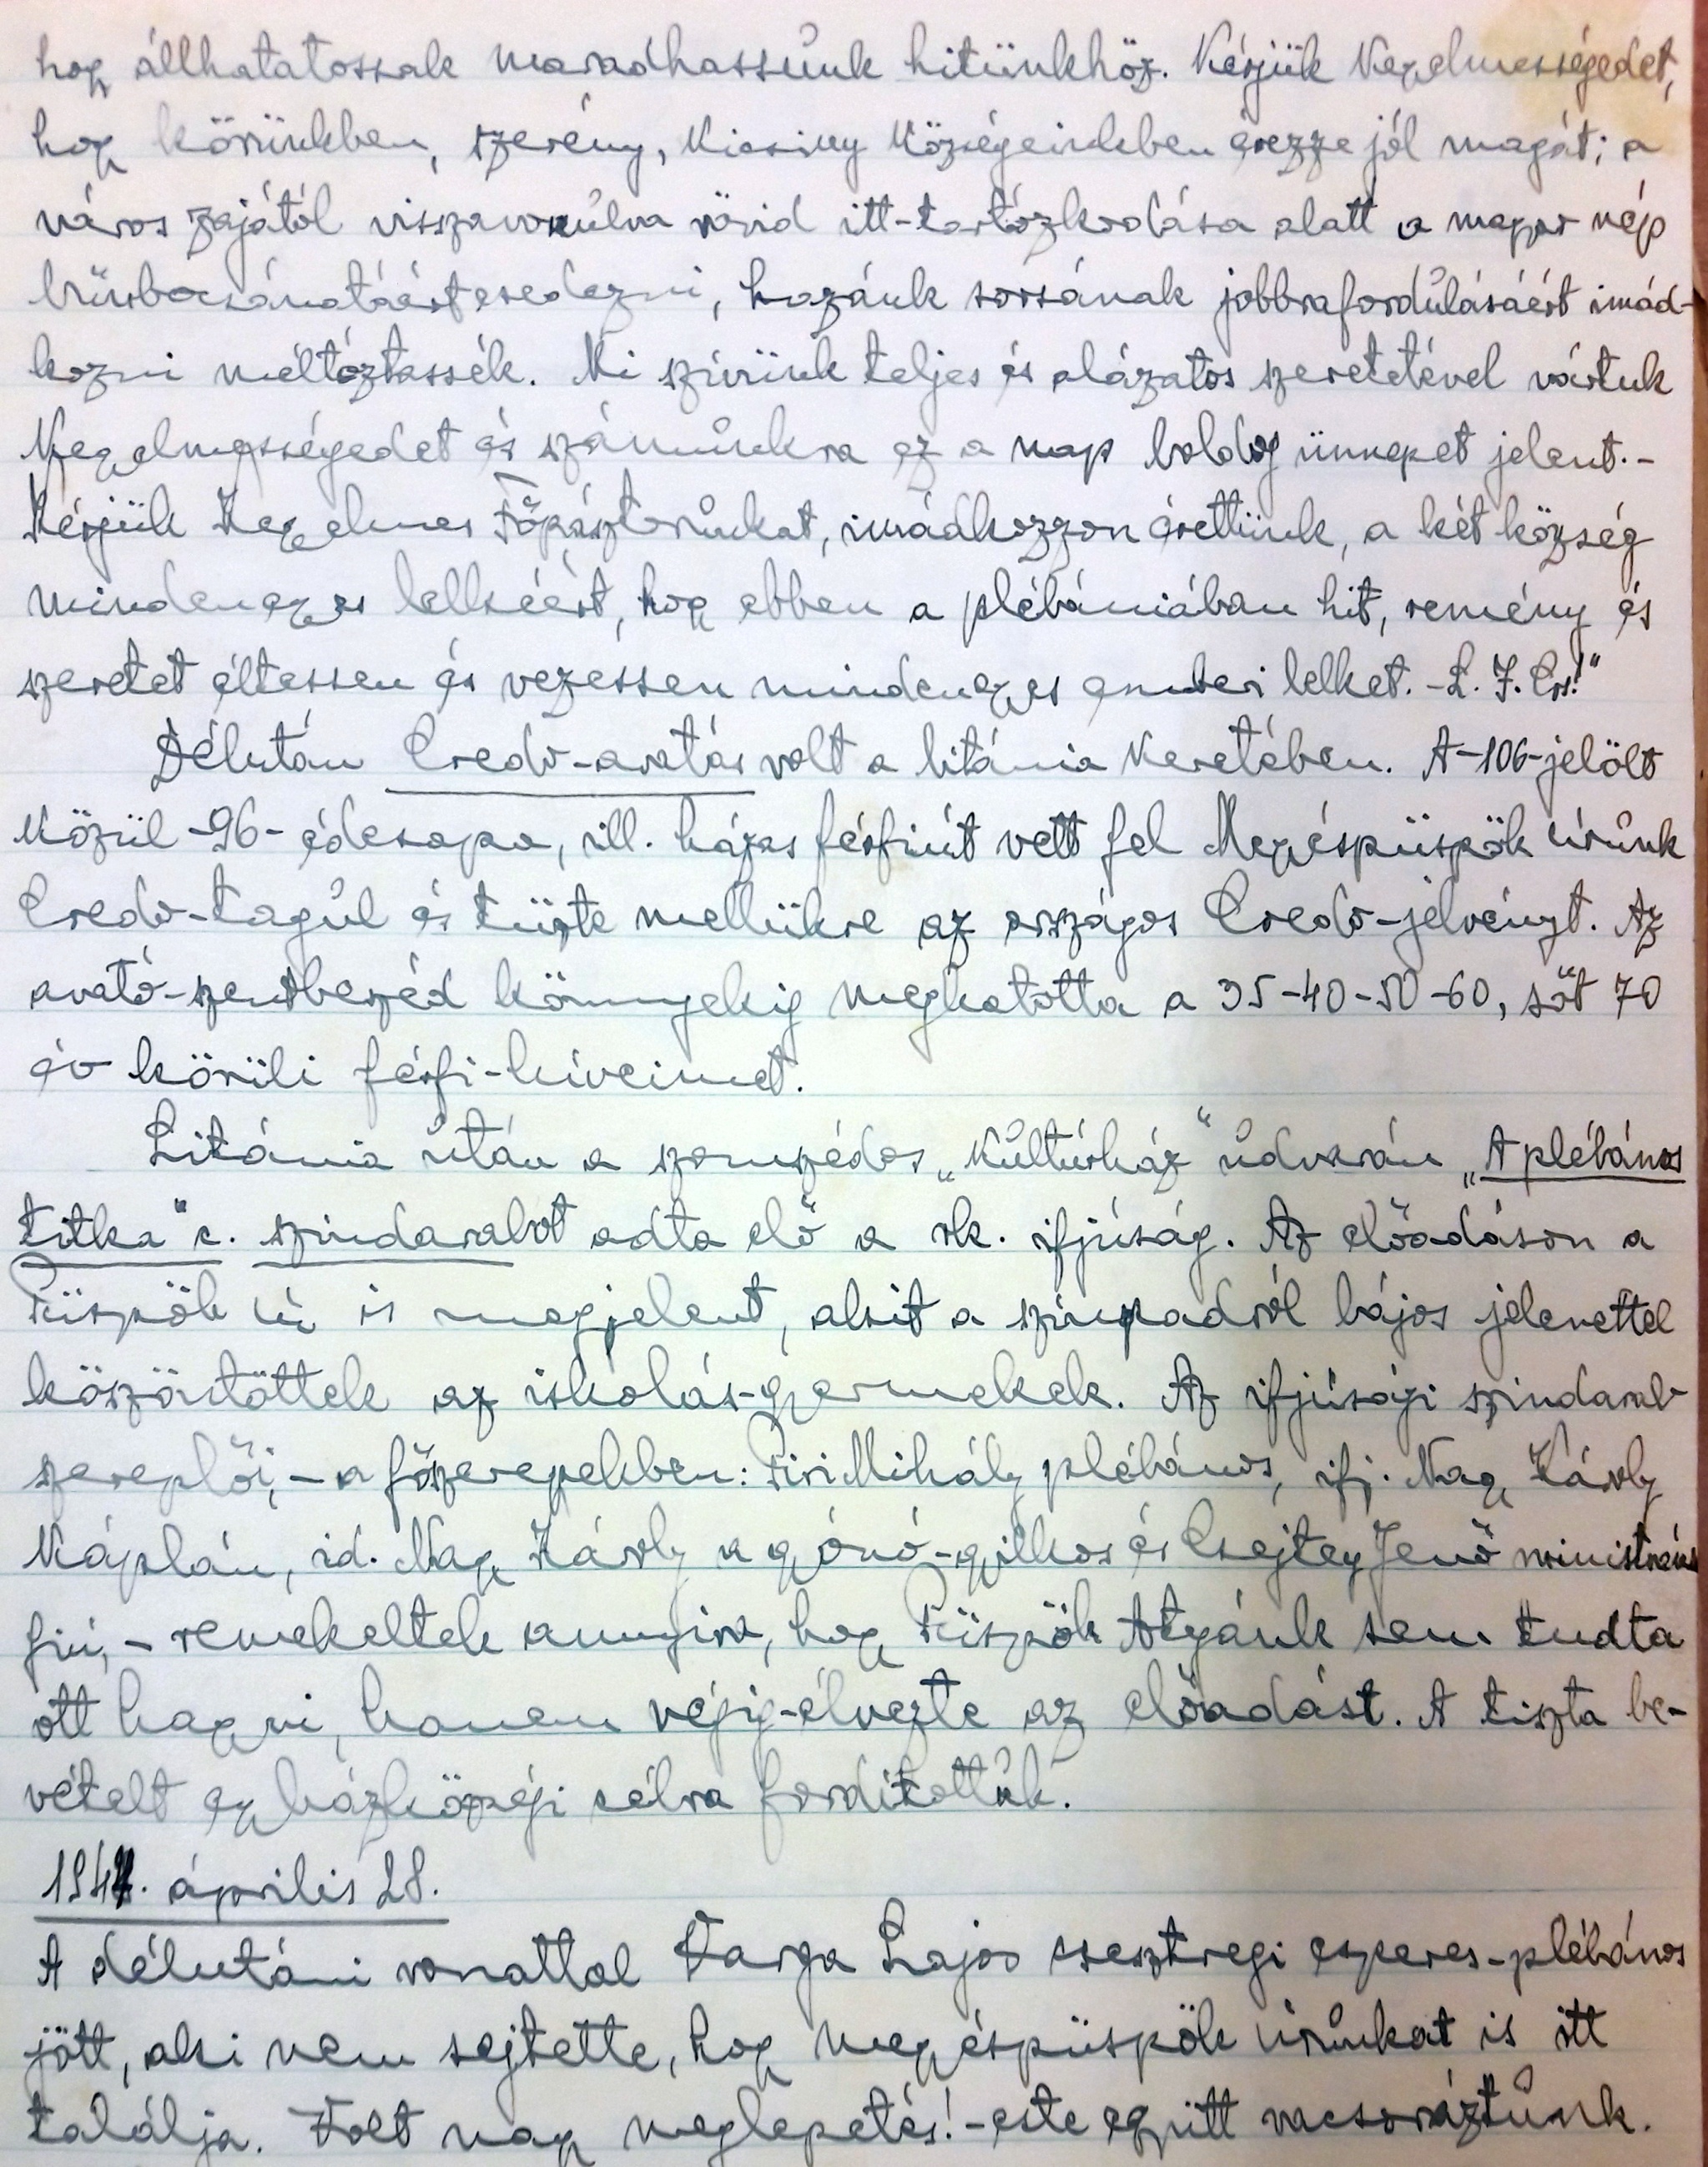 hogy állhatatossak maradhassunk hitünkhöz. Kérjük Kegyelmességedet,
hogy körünkben, szerény, kicsiny községeinkben érezze jól magát; a
város zajától visszavonulva rövid itt-tartózkodása alatt a magyar nép
bűnbocsánatáért esedezni, hazánk sorsának jobbrafordulásáért imád-
kozni méltóztassék. Mi szívünk teljes és alázatos szeretetével vártuk
Kegyelmességedet és számunkra ez a nap boldog ünnepet jelent.-
Kérjük Kegyelmes Főpásztorunkat, imádkozzon érettünk, a két község
mindenegyes lelkéért, hogy ebben a plébániában hit, remény és
szeretet éltessen és vezessen mindenegyes emberi lelket. - L. J. Cr.!"
Délután Credo-avatás volt a litánia keretében. A -106- jelölt
közül -96- édesapa, ill. házas férfiút vett fel Megyéspüspök úrunk
Credo-tagúl és tűzte mellükre az országos Credo-jelvényt. Az
avató-szentbeszéd könnyekig meghatotta a 35-40-50-60, sőt 70
év körüli férfi-híveimet.
Litánia után a szomszédos „Kultúrház" udvarán „A plébános
titka" c. színdarabot adta elő a rk. ifjúság. Az előadáson a
Püspök úr is megjelent, akit a színpadról bájos jelenettel
köszöntöttek az iskolás-gyermekek. Az ifjúsági színdarab
szereplői, - a főszerepekben: Piri Mihály plébános, ifj. Nagy Károly
káplán, id. Nagy Károly a gyónó-gyilkos és Csejtey Jenő ministráns
fiú, - remekeltek annyira, hogy Püspök Atyánk sem tudta
ott hagyni, hanem végig-élvezte az előadást. A tiszta be-
vételt egyházközségi célra fordítottuk.
1947. április 28.
A délutáni vonattal Varga Lajos csesztregi esperes-plébános
jött, aki nem sejtette, hogy megyéspüspök úrunkat is itt
találja. Volt nagy meglepetés! - este együtt vacsoráztunk.